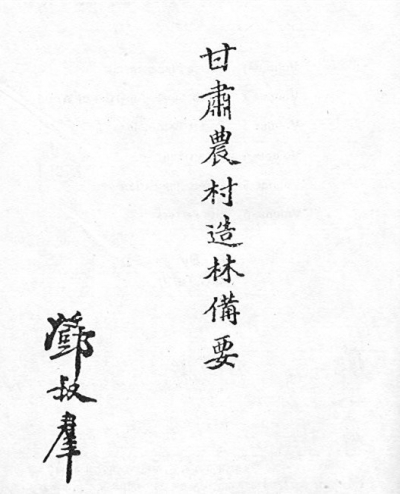 甘肅農村造林備要
鄧叔羣